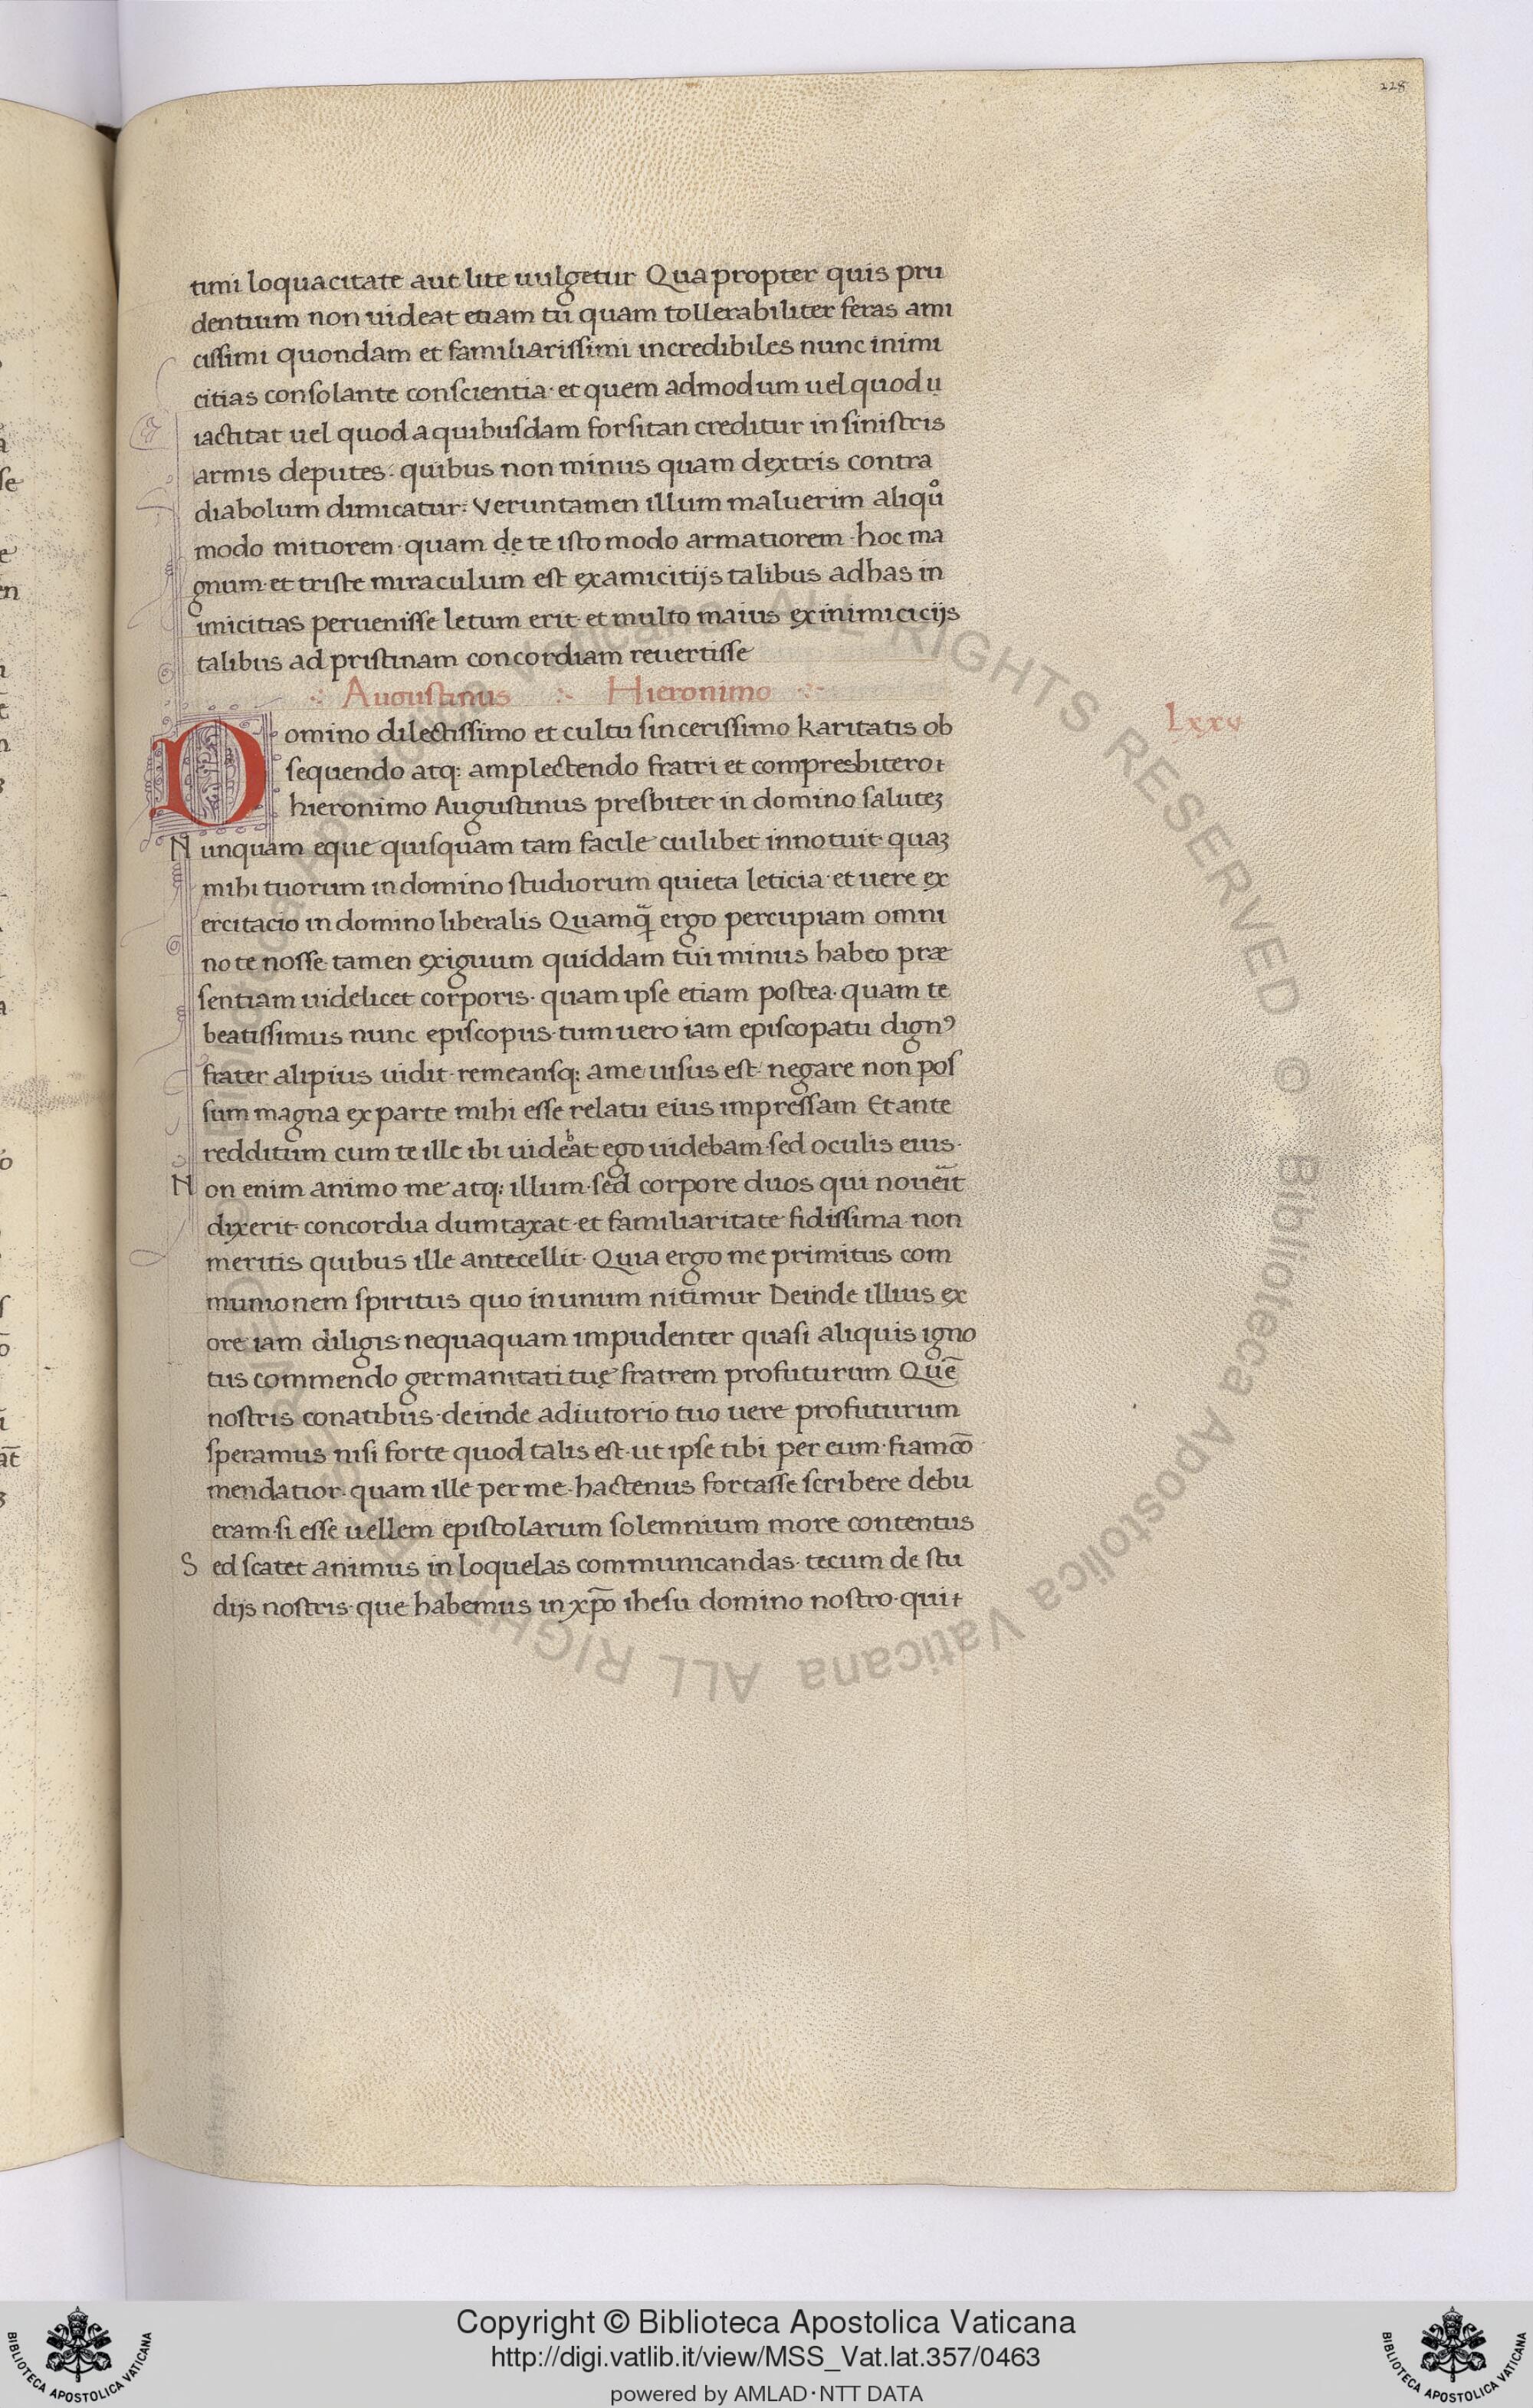 228
timi loquacitate aut lite uulgetur Quapropter quis pru
dentium non uideat etiam tu quam tollerabiliter feras ami
cissimi quondam et familiarissimi incredibiles nunc inimi
citias consolante conscientia· et quem admodum uel quod u
iactitat uel quod aquibusdam forsitan creditur in sinistris
armis deputes: quibus non minus quam dextris contra
diabolum dimicatur: Veruntamen illum maluerim aliqͦ
modo mitiorem· quam de te isto modo armatiorem· hoc ma
gnum· et triste miraculum est examicitijs talibus adhas in
imicitias peruenisse letum erit· et multo maius ex inimicicijs
talibus ad pristinam concordiam reuertisse
Augustinus Hieronimo
Lxxv
Domino dilectissimo et cultu sincerissimo karitatis ob
sequendo atq: amplectendo fratri et compresbitero
hieronimo Augustinus presbiter in domino saluteꝫ
Nunquam eque quisquam tam facile cuilibet innotuit quaꝫ
mihi tuorum in domino studiorum quieta leticia· et uere ex
ercitacio in domino liberalis Quamq̃ ergo percupiam omni
no te nosse· tamen exiguum quiddam tui minus habeo præ
sentiam uidelicet corporis· quam ipse etiam postea· quam te
beatissimus nunc episcopus· tum uero iam episcopatu dignꝰ
frater alipius uidit· remeansq: ame uisus est· negare non pos
sum magna ex parte mihi esse relatu eius impressam Et ante
redditum cum te ille ibi uidebat ego uidebam· sed oculis eius·
Non enim animo me atq: illum· sed corpore duos qui noueīt
dixerit· concordia dumtaxat· et familiaritate fidissima· non
meritis quibus ille antecellit· Quia ergo me primitus com
munionem spiritus quo inunum nitimur Deinde illius ex
ore iam diligis· nequaquam impudenter quasi aliquis igno
tus commendo germanitati tuę fratrem profuturum Quē
nostris conatibus· deinde adiutorio tuo uere profuturum
speramus nisi forte quod talis est· ut ipse tibi per eum· fiam cō
mendatior· quam ille per me· hactenus fortasse scribere debu
eram· si esse uellem epistolarum solemnium more contentus
Sed scatet animus in loquelas communicandas· tecum de stu
dijs nostris· que habemus in xp̄o ihesu domino nostro· qui
Copyright © Biblioteca Apostolica Vaticana
http://digi.vatlib.it/view/MSS_Vat.lat.357/0463
powered by AMLAD·NTT DATA
BIBLIOTECA APOSTOLICA VATICANA
BIBLIOTECA APOSTOLICA VATICANA